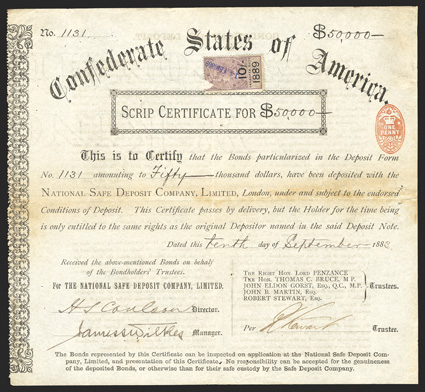 No. 1131
$50,000—
Confederate States of America.
10/-
1889
SCRIP CERTIFICATE FOR $50,000—
ONE PENNY
This is to Certify that the Bonds particularized in the Deposit Form
No. 1131 amounting to Fifty— thousand dollars, have been deposited with the
NATIONAL SAFE DEPOSIT COMPANY, LIMITED, London, under and subject to the endorsed
Conditions of Deposit. This Certificate passes by delivery, but the Holder for the time being
is only entitled to the same rights as the original Depositor named in the said Deposit Note.
Dated this tenth day of September 1883
Received the above-mentioned Bonds on behalf
of the Bondholders' Trustees.
For THE NATIONAL SAFE DEPOSIT COMPANY, LIMITED.
H S Coulson Director.
James Wilkes Manager.
THE RIGHT HON. LORD PENZANCE
THE HON. THOMAS C. BRUCE, M.P.
JOHN ELDON GORST, ESQ., Q.C., M.P.
JOHN B. MARTIN, ESQ.
ROBERT STEWART, ESQ.
Trustees.
Per R Stewart Trustee.
The Bonds represented by this Certificate can be inspected on application at the National Safe Deposit Com-
pany, Limited, and presentation of this Certificate. No responsibility can be accepted for the genuineness
of the deposited Bonds, or otherwise than for their safe custody by the Safe Deposit Company.